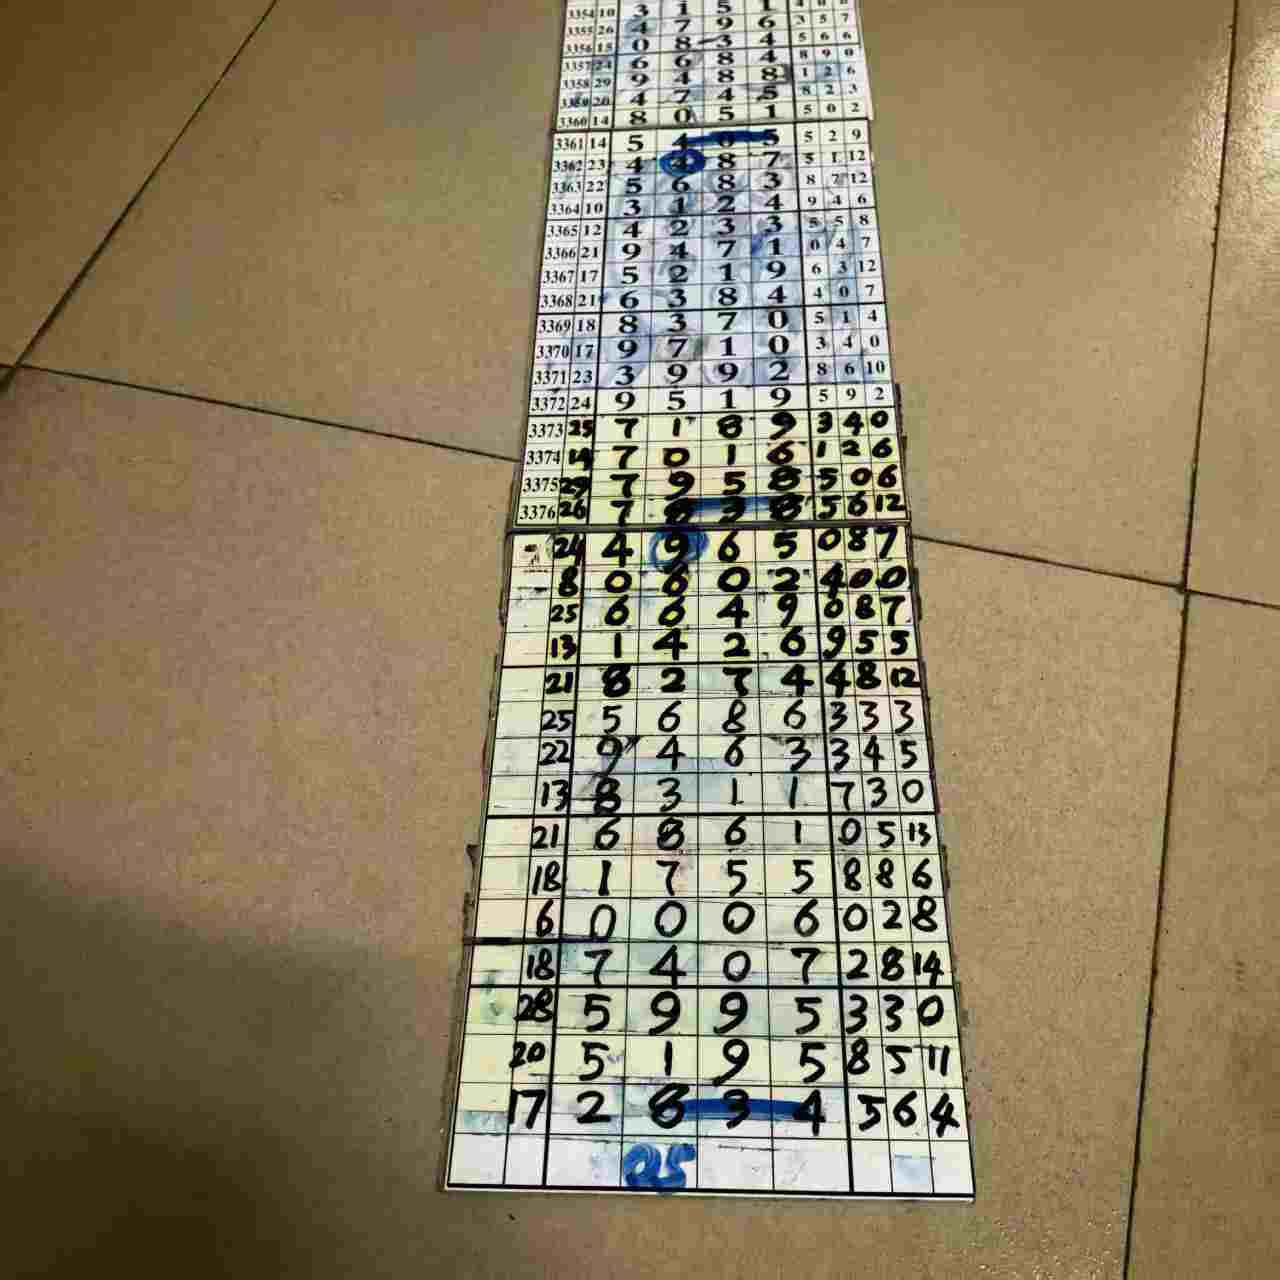 3354 10 3 1 5 1 4 0 8
3355 26 4 7 9 6 3 5 7
3356 15 0 8 3 4 5 6 6
3357 24 6 6 8 4 8 9 0
3358 29 9 4 8 8 1 2 6
3359 20 4 7 4 5 8 2 3
3360 14 8 0 5 1 5 0 2
3361 14 5 4 0 5 5 2 9
3362 23 4 4 8 7 5 1 12
3363 22 5 6 8 3 8 7 12
3364 10 3 1 2 4 9 4 6
3365 12 4 2 3 3 5 5 8
3366 21 9 4 7 1 0 4 7
3367 17 5 2 1 9 6 3 12
3368 21 6 3 8 4 4 0 7
3369 18 8 3 7 0 5 1 4
3370 17 9 7 1 0 3 4 0
3371 23 3 9 9 2 8 6 10
3372 24 9 5 1 9 5 9 2
3373 25 7 1 8 9 3 4 0
3374 14 7 0 1 6 1 2 6
3375 29 7 9 5 8 5 0 6
3376 26 7 8 3 8 5 6 12
24 4 9 6 5 0 8 7
8 0 6 0 2 4 0 0
25 6 6 4 9 0 8 7
13 1 4 2 6 9 5 5
21 8 2 7 4 4 8 12
25 5 6 8 6 3 3 3
22 9 4 6 3 3 4 5
13 8 3 1 1 7 3 0
21 6 8 6 1 0 5 13
18 1 7 5 5 8 8 6
6 0 0 0 6 0 2 8
18 7 4 0 7 2 8 14
28 5 9 9 5 3 3 0
20 5 1 9 5 8 5 11
17 2 8 3 4 5 6 4